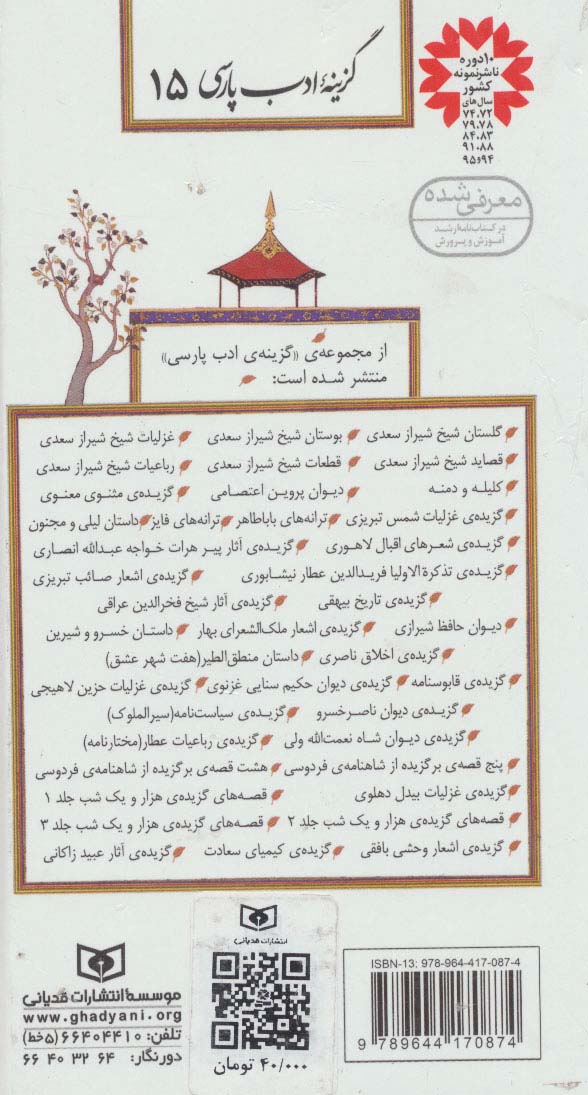 گزینهٔ ادب پارسی ۱۵
۱۰ دوره
ناشر نمونه
کشور
سال‌های
۷۴.۷۲
۷۹.۷۸
۸۴.۸۳
۹۱.۸۸
۹۴و۹۵
معرفی شده
در کتاب‌نامه رشد
آموزش و پرورش
از مجموعه‌ی «گزینه‌ی ادب پارسی»
منتشر شده است:
گلستان شیخ شیراز سعدی بوستان شیخ شیراز سعدی غزلیات شیخ شیراز سعدی
قصاید شیخ شیراز سعدی قطعات شیخ شیراز سعدی رباعیات شیخ شیراز سعدی
کلیله و دمنه دیوان پروین اعتصامی گزیده‌ی مثنوی معنوی
گزیده‌ی غزلیات شمس تبریزی ترانه‌های باباطاهر ترانه‌های فایز داستان لیلی و مجنون
گزیده‌ی شعرهای اقبال لاهوری گزیده‌ی آثار پیر هرات خواجه عبدالله انصاری
گزیده‌ی تذکرة الاولیا فریدالدین عطار نیشابوری گزیده‌ی اشعار صائب تبریزی
گزیده‌ی تاریخ بیهقی گزیده‌ی آثار شیخ فخرالدین عراقی
دیوان حافظ شیرازی گزیده‌ی اشعار ملک‌الشعرای بهار داستان خسرو و شیرین
گزیده‌ی اخلاق ناصری داستان منطق‌الطیر(هفت شهر عشق)
گزیده‌ی قابوسنامه گزیده‌ی دیوان حکیم سنایی غزنوی گزیده‌ی غزلیات حزین لاهیجی
گزیده‌ی دیوان ناصرخسرو گزیده‌ی سیاست‌نامه(سیرالملوک)
گزیده‌ی دیوان شاه نعمت‌الله ولی گزیده‌ی رباعیات عطار(مختارنامه)
پنج قصه‌ی برگزیده از شاهنامه‌ی فردوسی هشت قصه‌ی برگزیده از شاهنامه‌ی فردوسی
گزیده‌ی غزلیات بیدل دهلوی قصه‌های گزیده‌ی هزار و یک شب جلد ۱
قصه‌های گزیده‌ی هزار و یک شب جلد ۲ قصه‌های گزیده‌ی هزار و یک شب جلد ۳
گزیده‌ی اشعار وحشی بافقی گزیده‌ی کیمیای سعادت گزیده‌ی آثار عبید زاکانی
انتشارات قدیانی
۴۰/۰۰۰ تومان
ISBN-13: 978-964-417-087-4
9 789644 170874
موسسهٔ انتشارات قدیانی
www.ghadyani.org
تلفن: ۶۶۴۰۴۴۱۰ (۵خط)
دورنگار: ۶۶ ۴۰ ۳۲ ۶۴